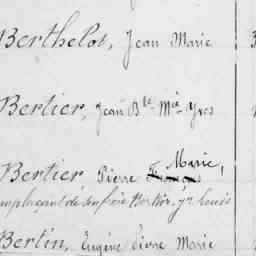 Berthelot, Jean Marie
Bertier, Jean Bte Mie Yves
Marie,
Bertier Pierre
remplaçant de son frère Bertier, Jn Louis
Bertin, Eugène Pierre Marie